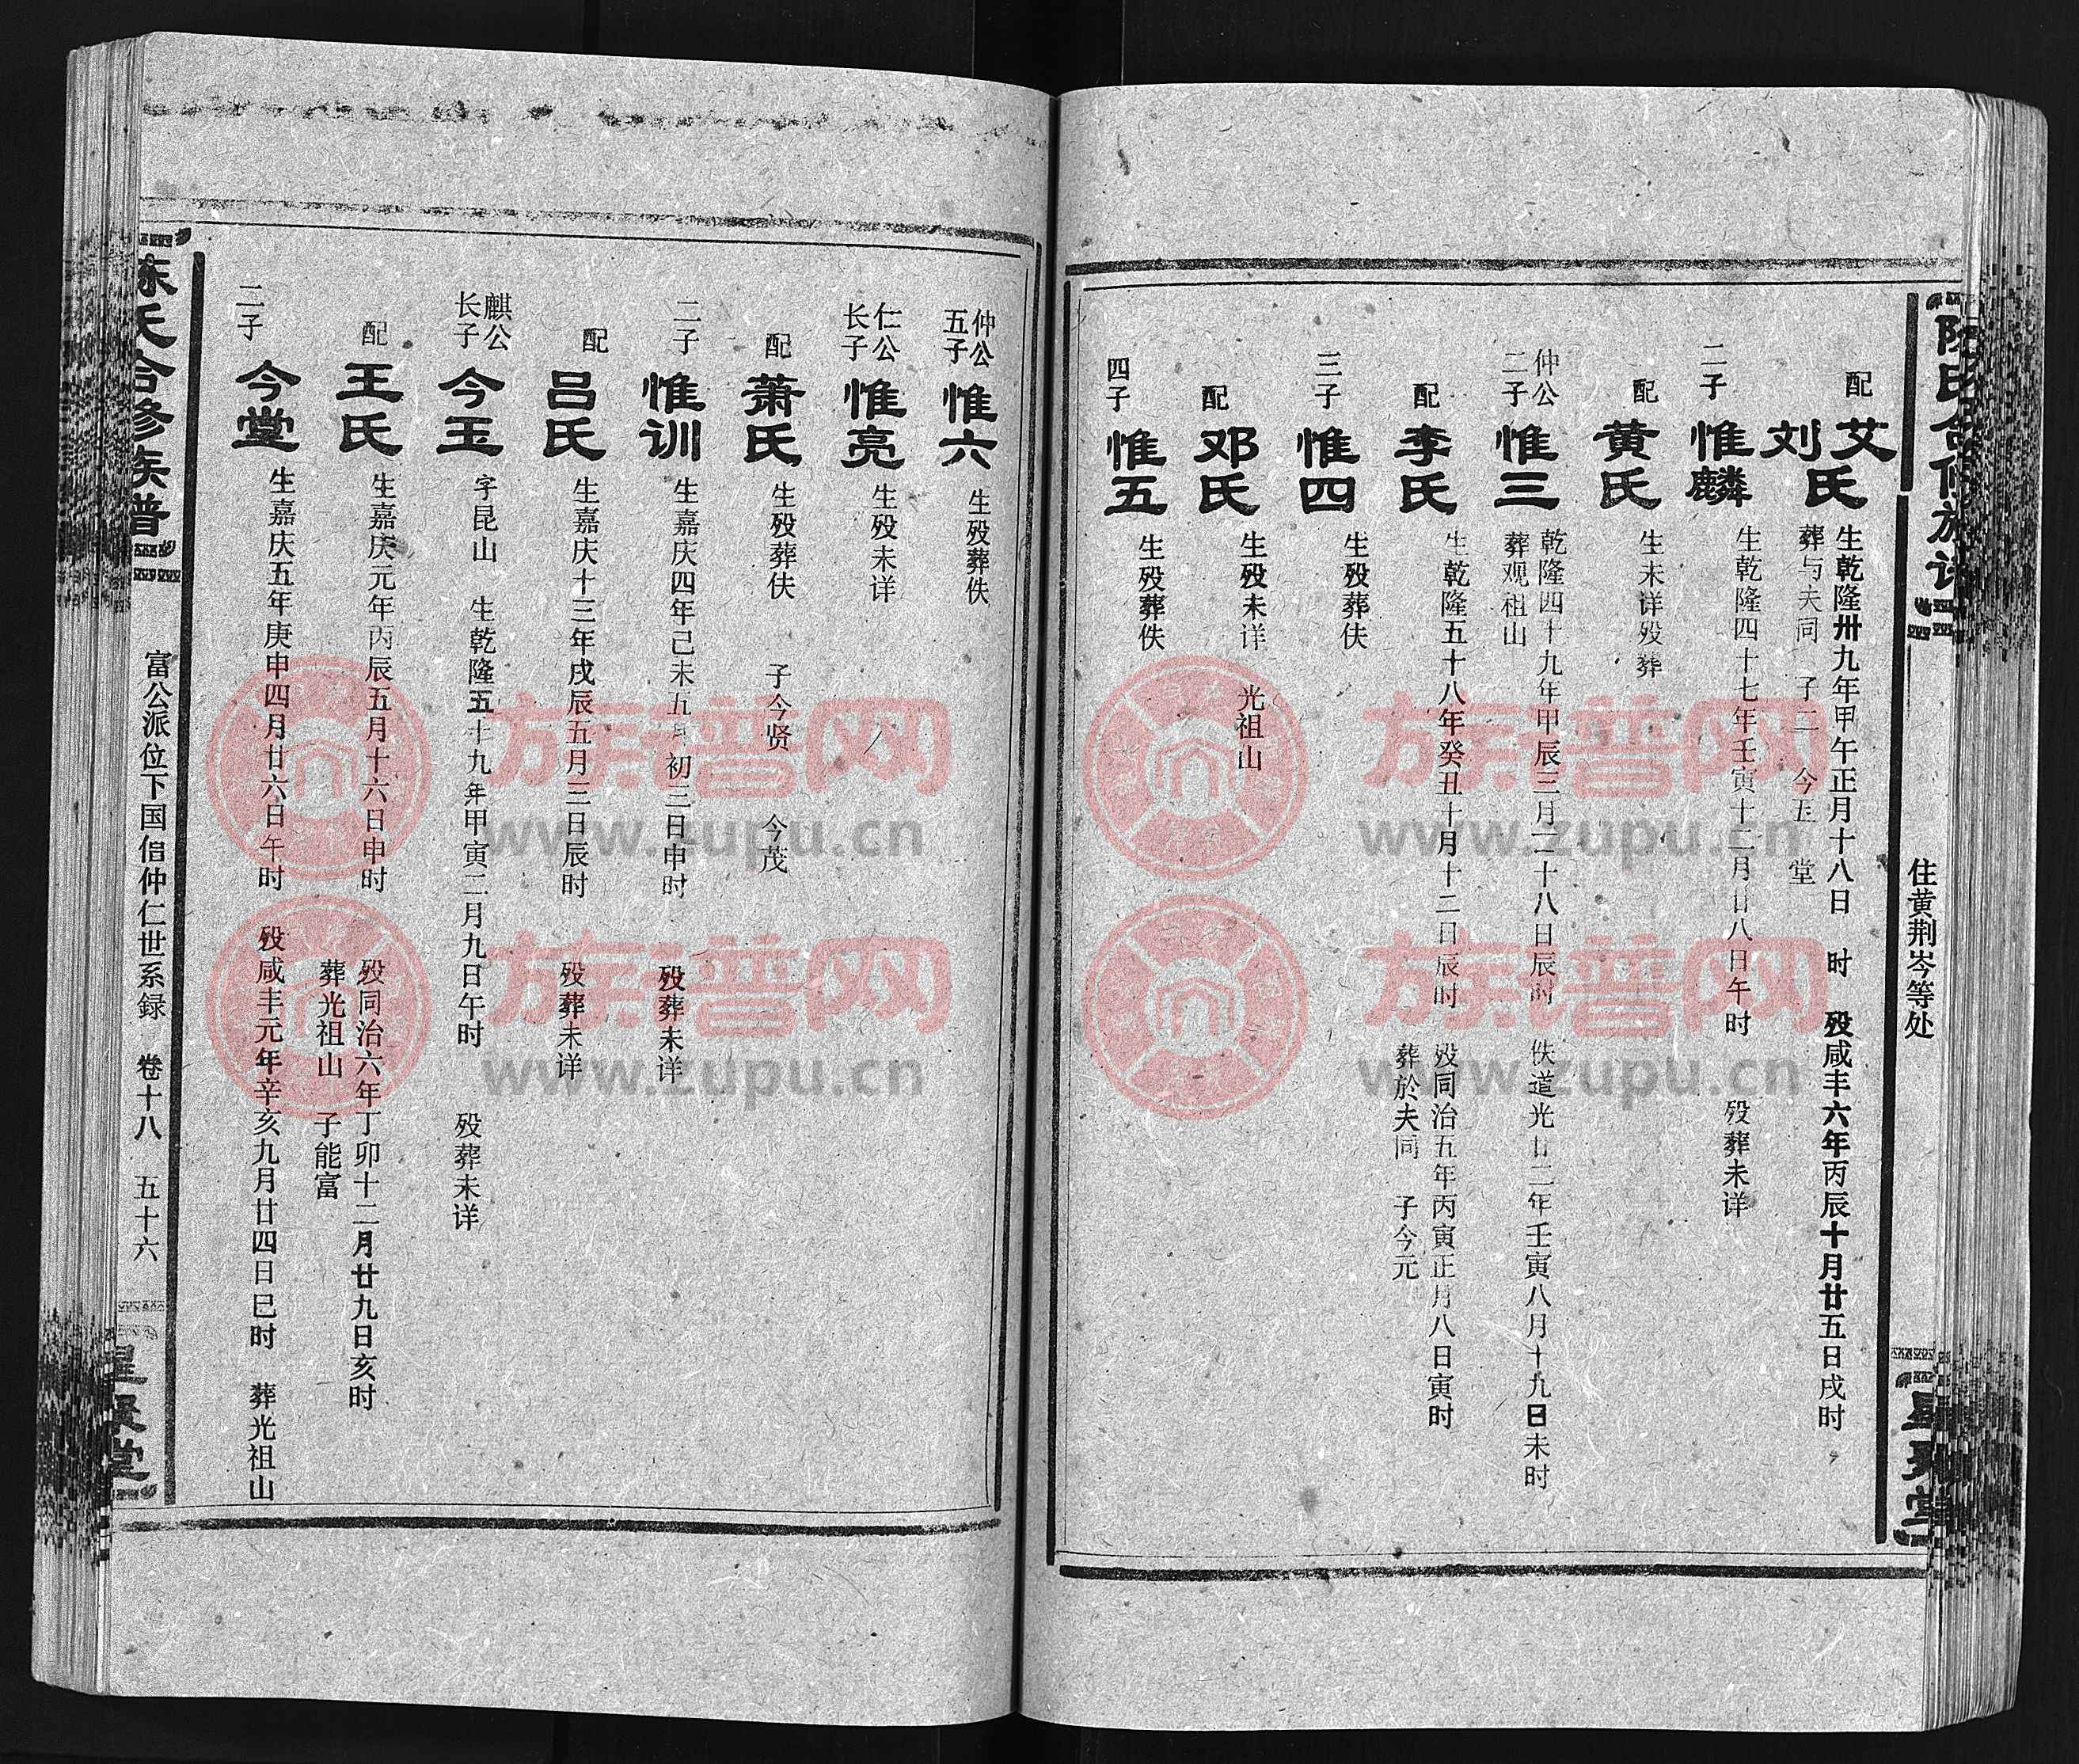 陈氏合修族谱
住黄荆岑等处
星聚堂
配
艾刘氏
生乾隆卅九年甲午正月十八日 时 殁咸丰六年丙辰十月廿五日戌时
葬与夫同 子二 今玉 堂
二子
惟麟
生乾隆四十七年壬寅十二月廿八日午时 殁葬未详
配
黄氏
生未详殁葬
仲公
二子
惟三
乾隆四十九年甲辰三月二十八日辰时 佚道光廿二年壬寅八月十九日未时
葬观祖山
配
李氏
生乾隆五十八年癸丑十月十二日辰时 殁同治五年丙寅正月八日寅时
葬於夫同 子今元
三子
惟四
生殁葬佚
配
邓氏
生殁未详 光祖山
四子
惟五
生殁葬佚
仲公
五子
惟六
生殁葬佚
仁公
长子
惟亮
生殁未详
配
萧氏
生殁葬佚 子今贤 今茂
二子
惟训
生嘉庆四年己未五月初三日申时 殁葬未详
配
吕氏
生嘉庆十三年戌辰五月三日辰时 殁葬未详
麒公
长子
今玉
字昆山 生乾隆五十九年甲寅二月九日午时 殁葬未详
配
王氏
生嘉庆元年丙辰五月十六日申时 殁同治六年丁卯十二月廿九日亥时
葬光祖山 子能富
二子
今堂
生嘉庆五年庚申四月廿六日午时 殁咸丰元年辛亥九月廿四日巳时 葬光祖山
陈氏合修族谱
富公派位下国倌仲仁世系録 卷十八 五十六
星聚堂
族谱网
www.zupu.cn
族谱网
www.zupu.cn
族谱网
www.zupu.cn
族谱网
www.zupu.cn